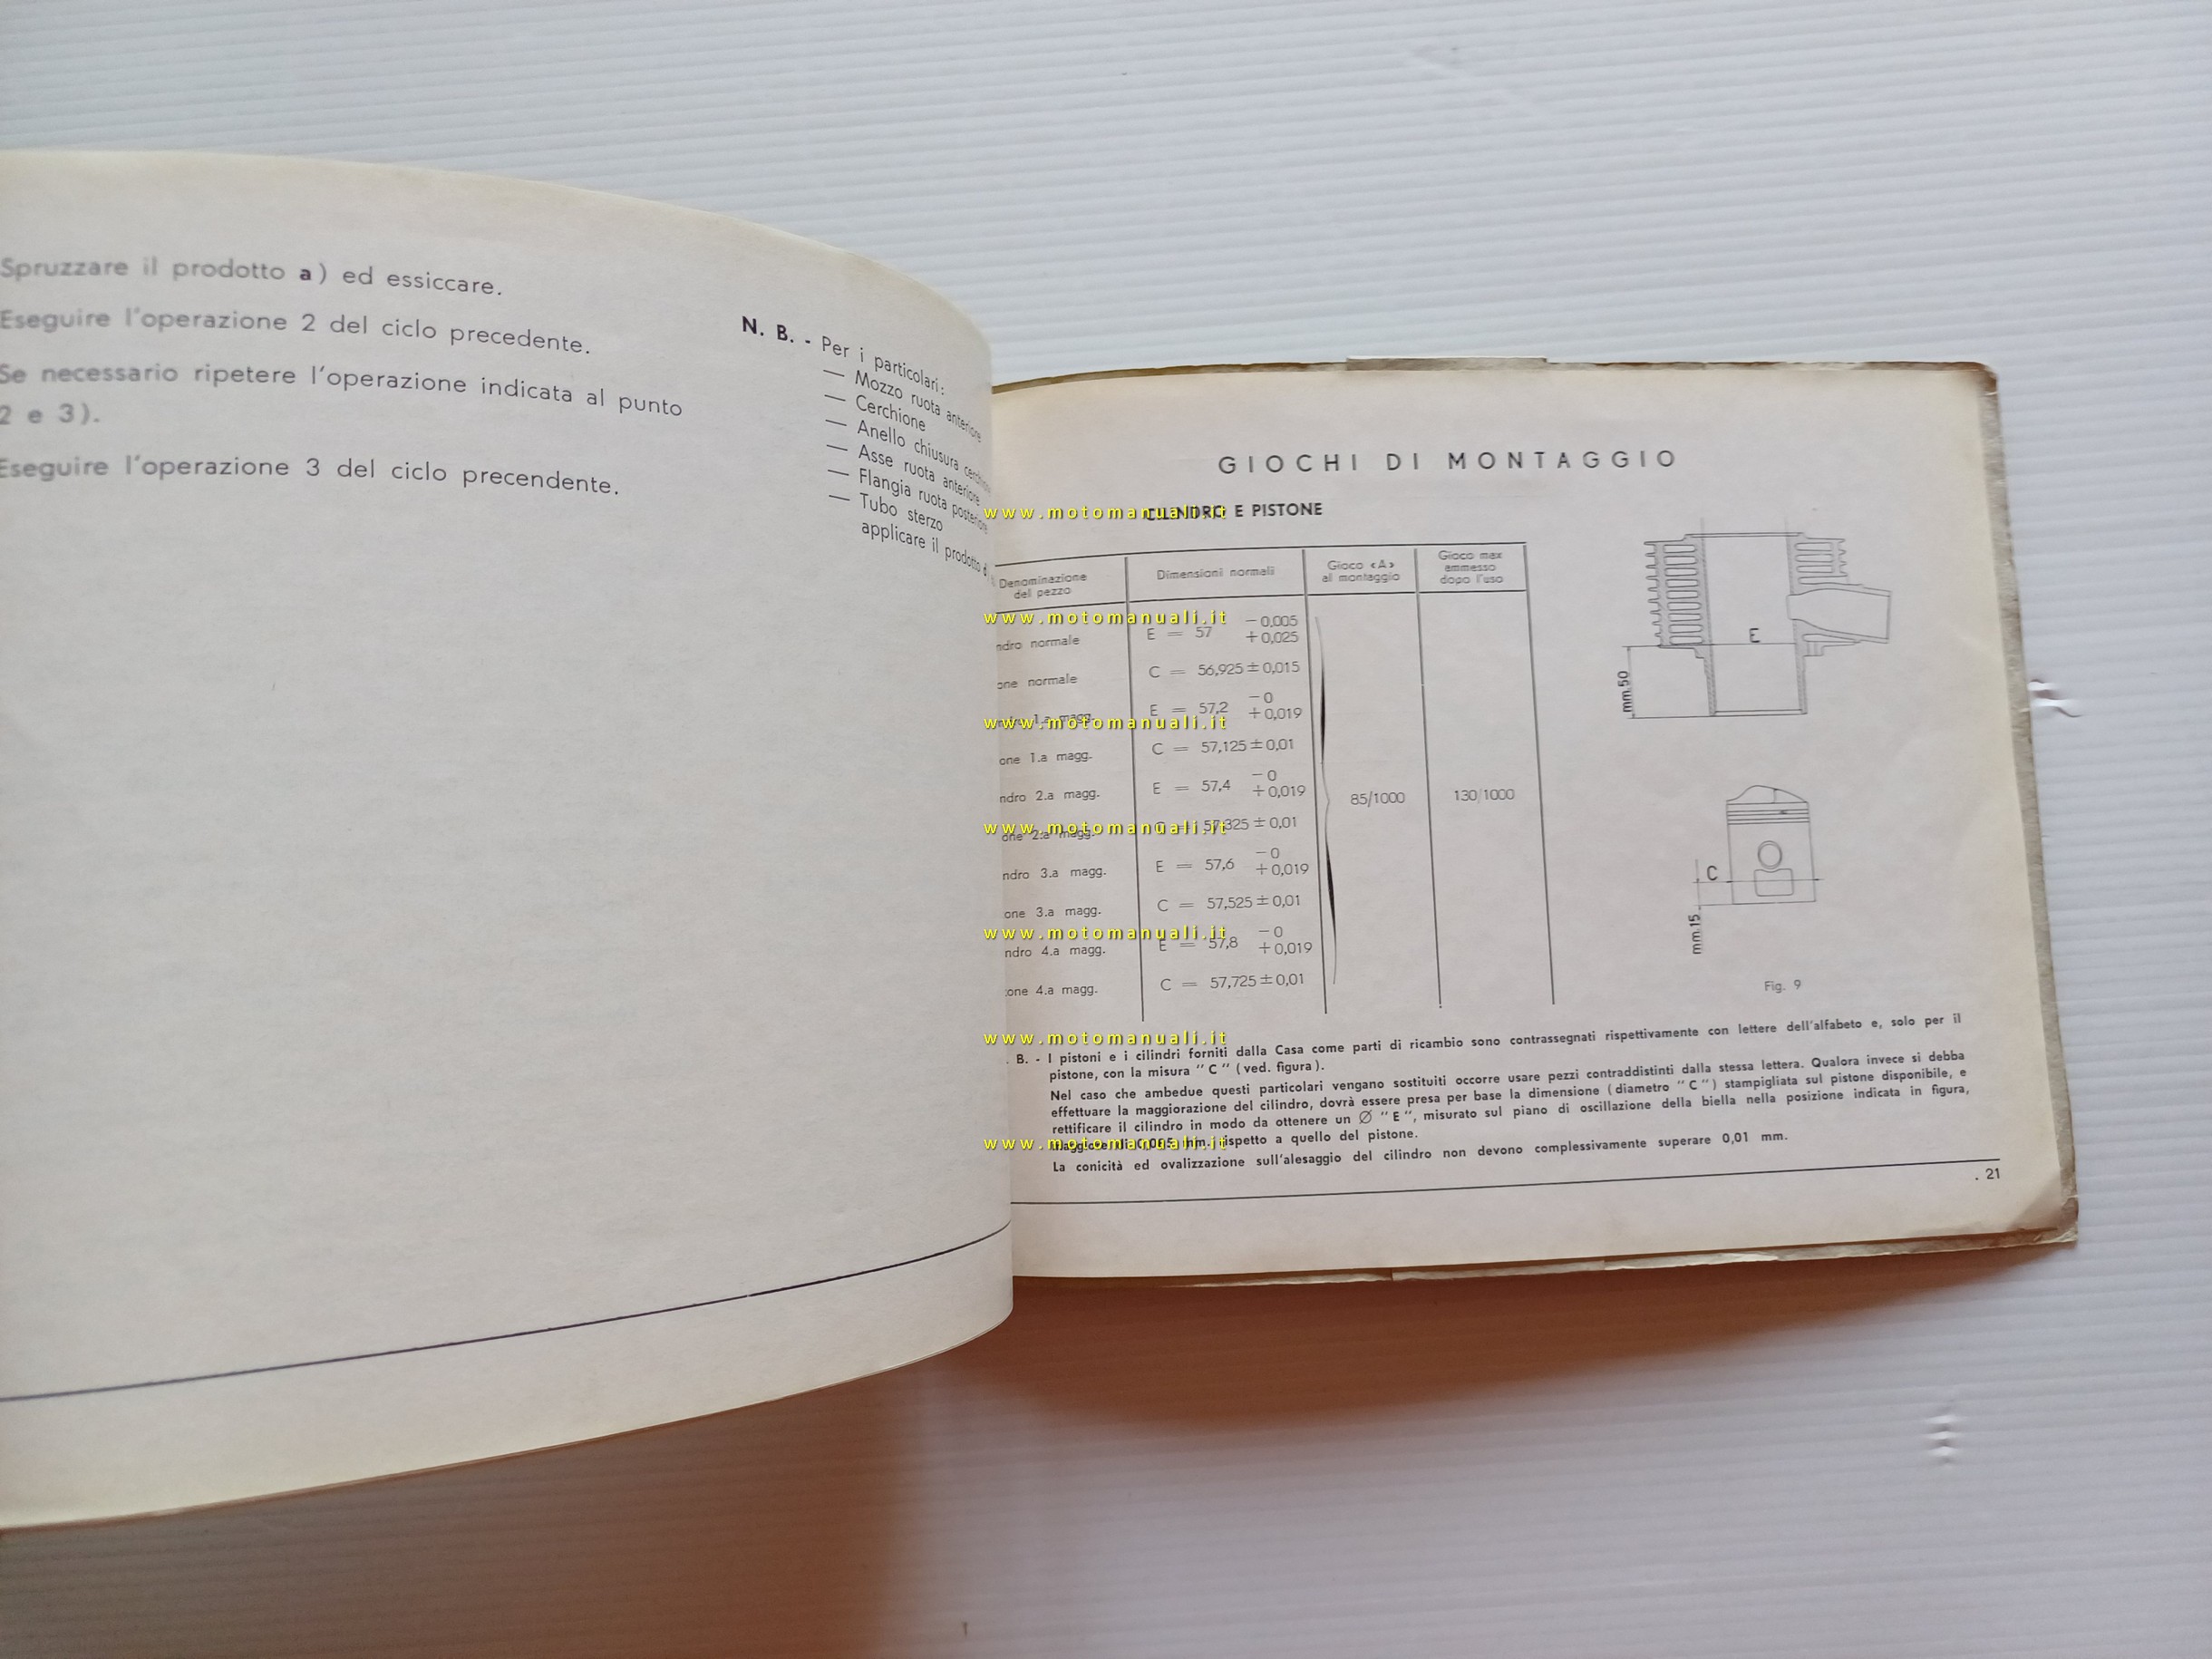 Spruzzare il prodotto a) ed essiccare.
Eseguire l'operazione 2 del ciclo precedente.
Se necessario ripetere l'operazione indicata al punto
2 e 3).
Eseguire l'operazione 3 del ciclo precendente.
N. B. - Per i particolari:
— Mozzo ruota anteriore
— Cerchione
— Anello chiusura
— Asse ruota anteriore
— Flangia ruota posteriore
— Tubo sterzo
applicare il prodotto
GIOCHI DI MONTAGGIO
CILINDRO E PISTONE
Denominazione del pezzo
Dimensioni normali
Gioco «A» al montaggio
Gioco max ammesso dopo l'uso
ndro normale E = 57 −0,005 +0,025
one normale C = 56,925 ± 0,015
1.a magg. E = 57,2 −0 +0,019
one 1.a magg. C = 57,125 ± 0,01
ndro 2.a magg. E = 57,4 −0 +0,019
85/1000 130/1000
one 2.a magg. C = 57,325 ± 0,01
ndro 3.a magg. E = 57,6 −0 +0,019
one 3.a magg. C = 57,525 ± 0,01
ndro 4.a magg. E = 57,8 −0 +0,019
one 4.a magg. C = 57,725 ± 0,01
E
mm.50
C
mm.15
Fig. 9
. B. - I pistoni e i cilindri forniti dalla Casa come parti di ricambio sono contrassegnati rispettivamente con lettere dell'alfabeto e, solo per il
pistone, con la misura “ C ” ( ved. figura ).
Nel caso che ambedue questi particolari vengano sostituiti occorre usare pezzi contraddistinti dalla stessa lettera. Qualora invece si debba
effettuare la maggiorazione del cilindro, dovrà essere presa per base la dimensione ( diametro “ C ” ) stampigliata sul pistone disponibile, e
rettificare il cilindro in modo da ottenere un Ø “ E ”, misurato sul piano di oscillazione della biella nella posizione indicata in figura,
maggiore di 0,085 mm. rispetto a quello del pistone.
La conicità ed ovalizzazione sull'alesaggio del cilindro non devono complessivamente superare 0,01 mm.
. 21
www.motomanuali.it
www.motomanuali.it
www.motomanuali.it
www.motomanuali.it
www.motomanuali.it
www.motomanuali.it
www.motomanuali.it